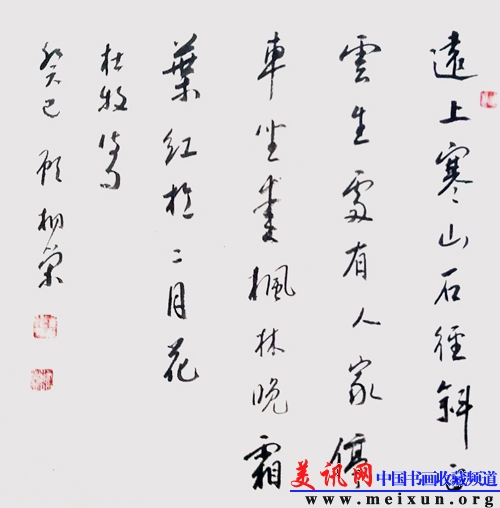 遠上寒山石徑斜白
雲生處有人家停
車坐愛楓林晚霜
葉紅於二月花
杜牧诗句
癸巳 顾
美讯网 中国书画收藏频道
www.meixun.org